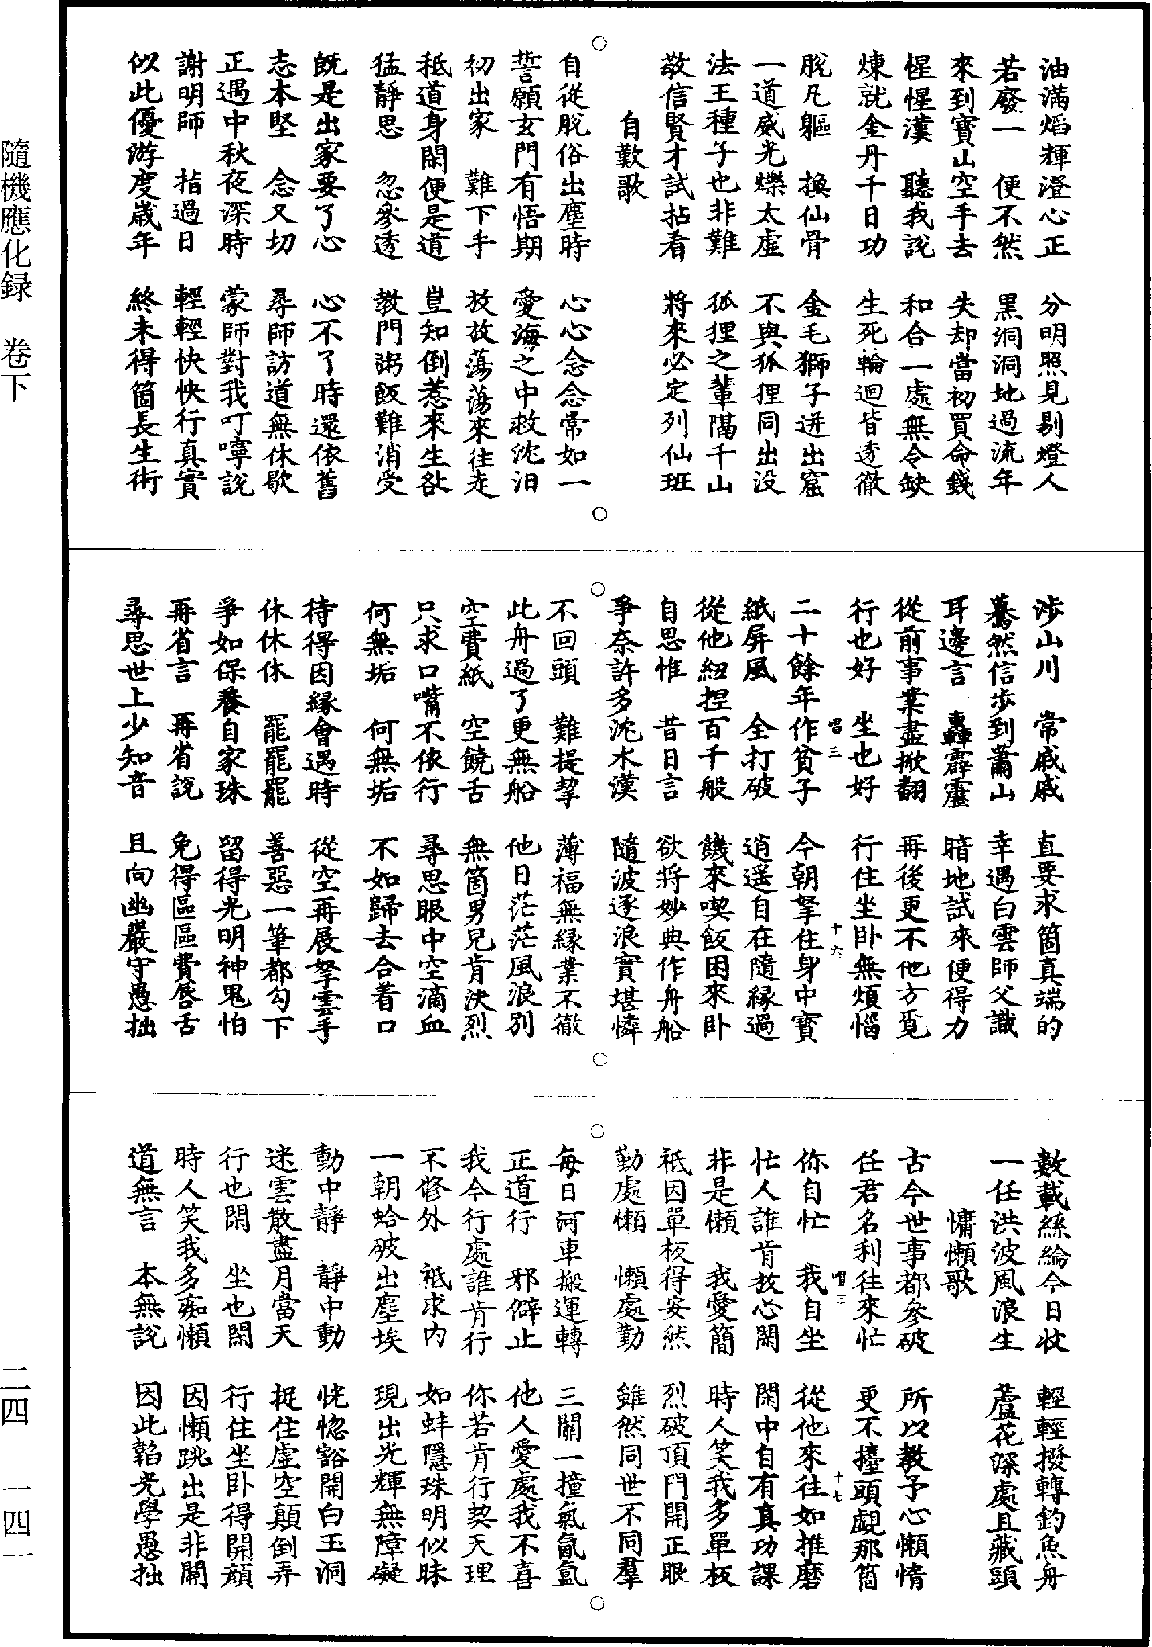 隨機應化録 卷下
二四 — 一四一
油滿焰輝澄心正 分明照見剔燈人
若廢一 便不然 黑洞洞地過流年
來到寶山空手去 失却當初買命錢
惺惺漢 聽我說 和合一處無令缺
煉就金丹千日功 生死輪迴皆透徹
脫凡軀 換仙骨 金毛獅子迸出窟
一道威光爍太虛 不與狐狸同出没
法王種子也非難 狐狸之輩隔千山
敢信賢才試拈看 將來必定列仙班
自歎歌
自從脫俗出塵時 心心念念常如一
誓願玄門有悟期 愛海之中救沈汨
初出家 難下手 放放蕩蕩來往走
秖道身閑便是道 豈知倒惹來生咎
猛靜思 忽參透 教門粥飯難消受
既是出家要了心 心不了時還依舊
志本堅 念又切 尋師訪道無休歇
正遇中秋夜深時 蒙師對我叮嚀說
謝明師 指過日 輕輕快快行真實
似此優游度歲年 終未得箇長生術
涉山川 常戚戚 直要求箇真端的
驀然信步到蕭山 幸遇白雲師父識
耳邊言 轟霹靂 暗地試來便得力
從前事業盡掀翻 再後更不他方覓
行也好 坐也好 行住坐卧無煩惱
二十餘年作貧子 今朝拏住身中寶
唱三 十六
紙屏風 全打破 逍遥自在隨緣過
從他紐捏百千般 饑來喫飯困來卧
自思惟 昔日言 欲將妙典作舟船
爭奈許多沈木漢 隨波逐浪實堪憐
不回頭 難提挈 薄福無緣業不徹
此舟過了更無船 他日茫茫風浪别
空費紙 空饒舌 無箇男兒肯決烈
只求口嘴不依行 尋思眼中空滴血
何無垢 何無垢 不如歸去合着口
待得因緣會遇時 從空再展拏雲手
休休休 罷罷罷 善惡一筆都勾下
爭如保養自家珠 留得光明神鬼怕
再省言 再省說 免得區區費唇舌
尋思世上少知音 且向幽巖守愚拙
數載絲綸今日收 輕輕撥轉釣魚舟
一任洪波風浪生 蘆花深處且藏頭
慵懶歌
古今世事都參破 所以教予心懶惰
任君名利往來忙 更不擡頭覷那箇
你自忙 我自坐 從他來往如推磨
唱三 十七
忙人誰肯放心閑 閑中自有真功課
非是懶 我愛簡 時人笑我多單板
秖因單板得安然 烈破頂門開正眼
勤處懶 懶處勤 雖然同世不同羣
每日河車搬運轉 三關一撞氣氤氳
正道行 邪僻止 他人愛處我不喜
我今行處誰肯行 你若肯行契天理
不修外 秖求内 如蚌隱珠明似昧
一朝蛤破出塵埃 現出光輝無障礙
動中靜 靜中動 恍惚豁開白玉洞
迷雲散盡月當天 捉住虛空顛倒弄
行也閑 坐也閑 行住坐卧得開顔
時人笑我多痴懶 因懶跳出是非關
道無言 本無說 因此韜光學愚拙